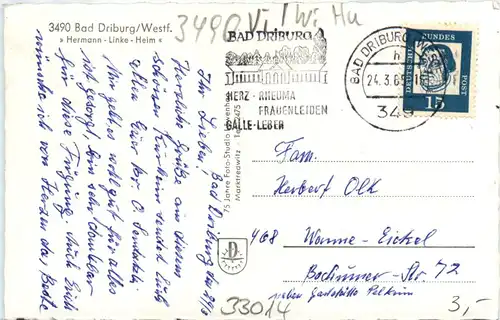 3490 Bad Driburg/Westf.
» Hermann - Linke - Heim «
3490 Vi / Wi Hu
BAD DRIBURG
HERZ - RHEUMA
FRAUENLEIDEN
GALLE-LEBER
BAD DRIBURG
24.3.6
349
DEUTSCHE BUNDESPOST
15
Ihr Lieben! Bad Driburg den
Herzliche Grüße aus diesem
schönen Kurheim sendet Euch
allen Euer
Mir geht es wohl gut für alles
ist gesorgt, bin sehr dankbar
für diese Fügung. Auch Euch
wünsche ich von Herzen das Beste
75 Jahre Foto-Studio
Marktredwitz
D
Fam.
Herbert Olk
468 Wanne-Eickel
Bochumer-Str. 72
neben Gaststätte Pelkrim
33014
3,-